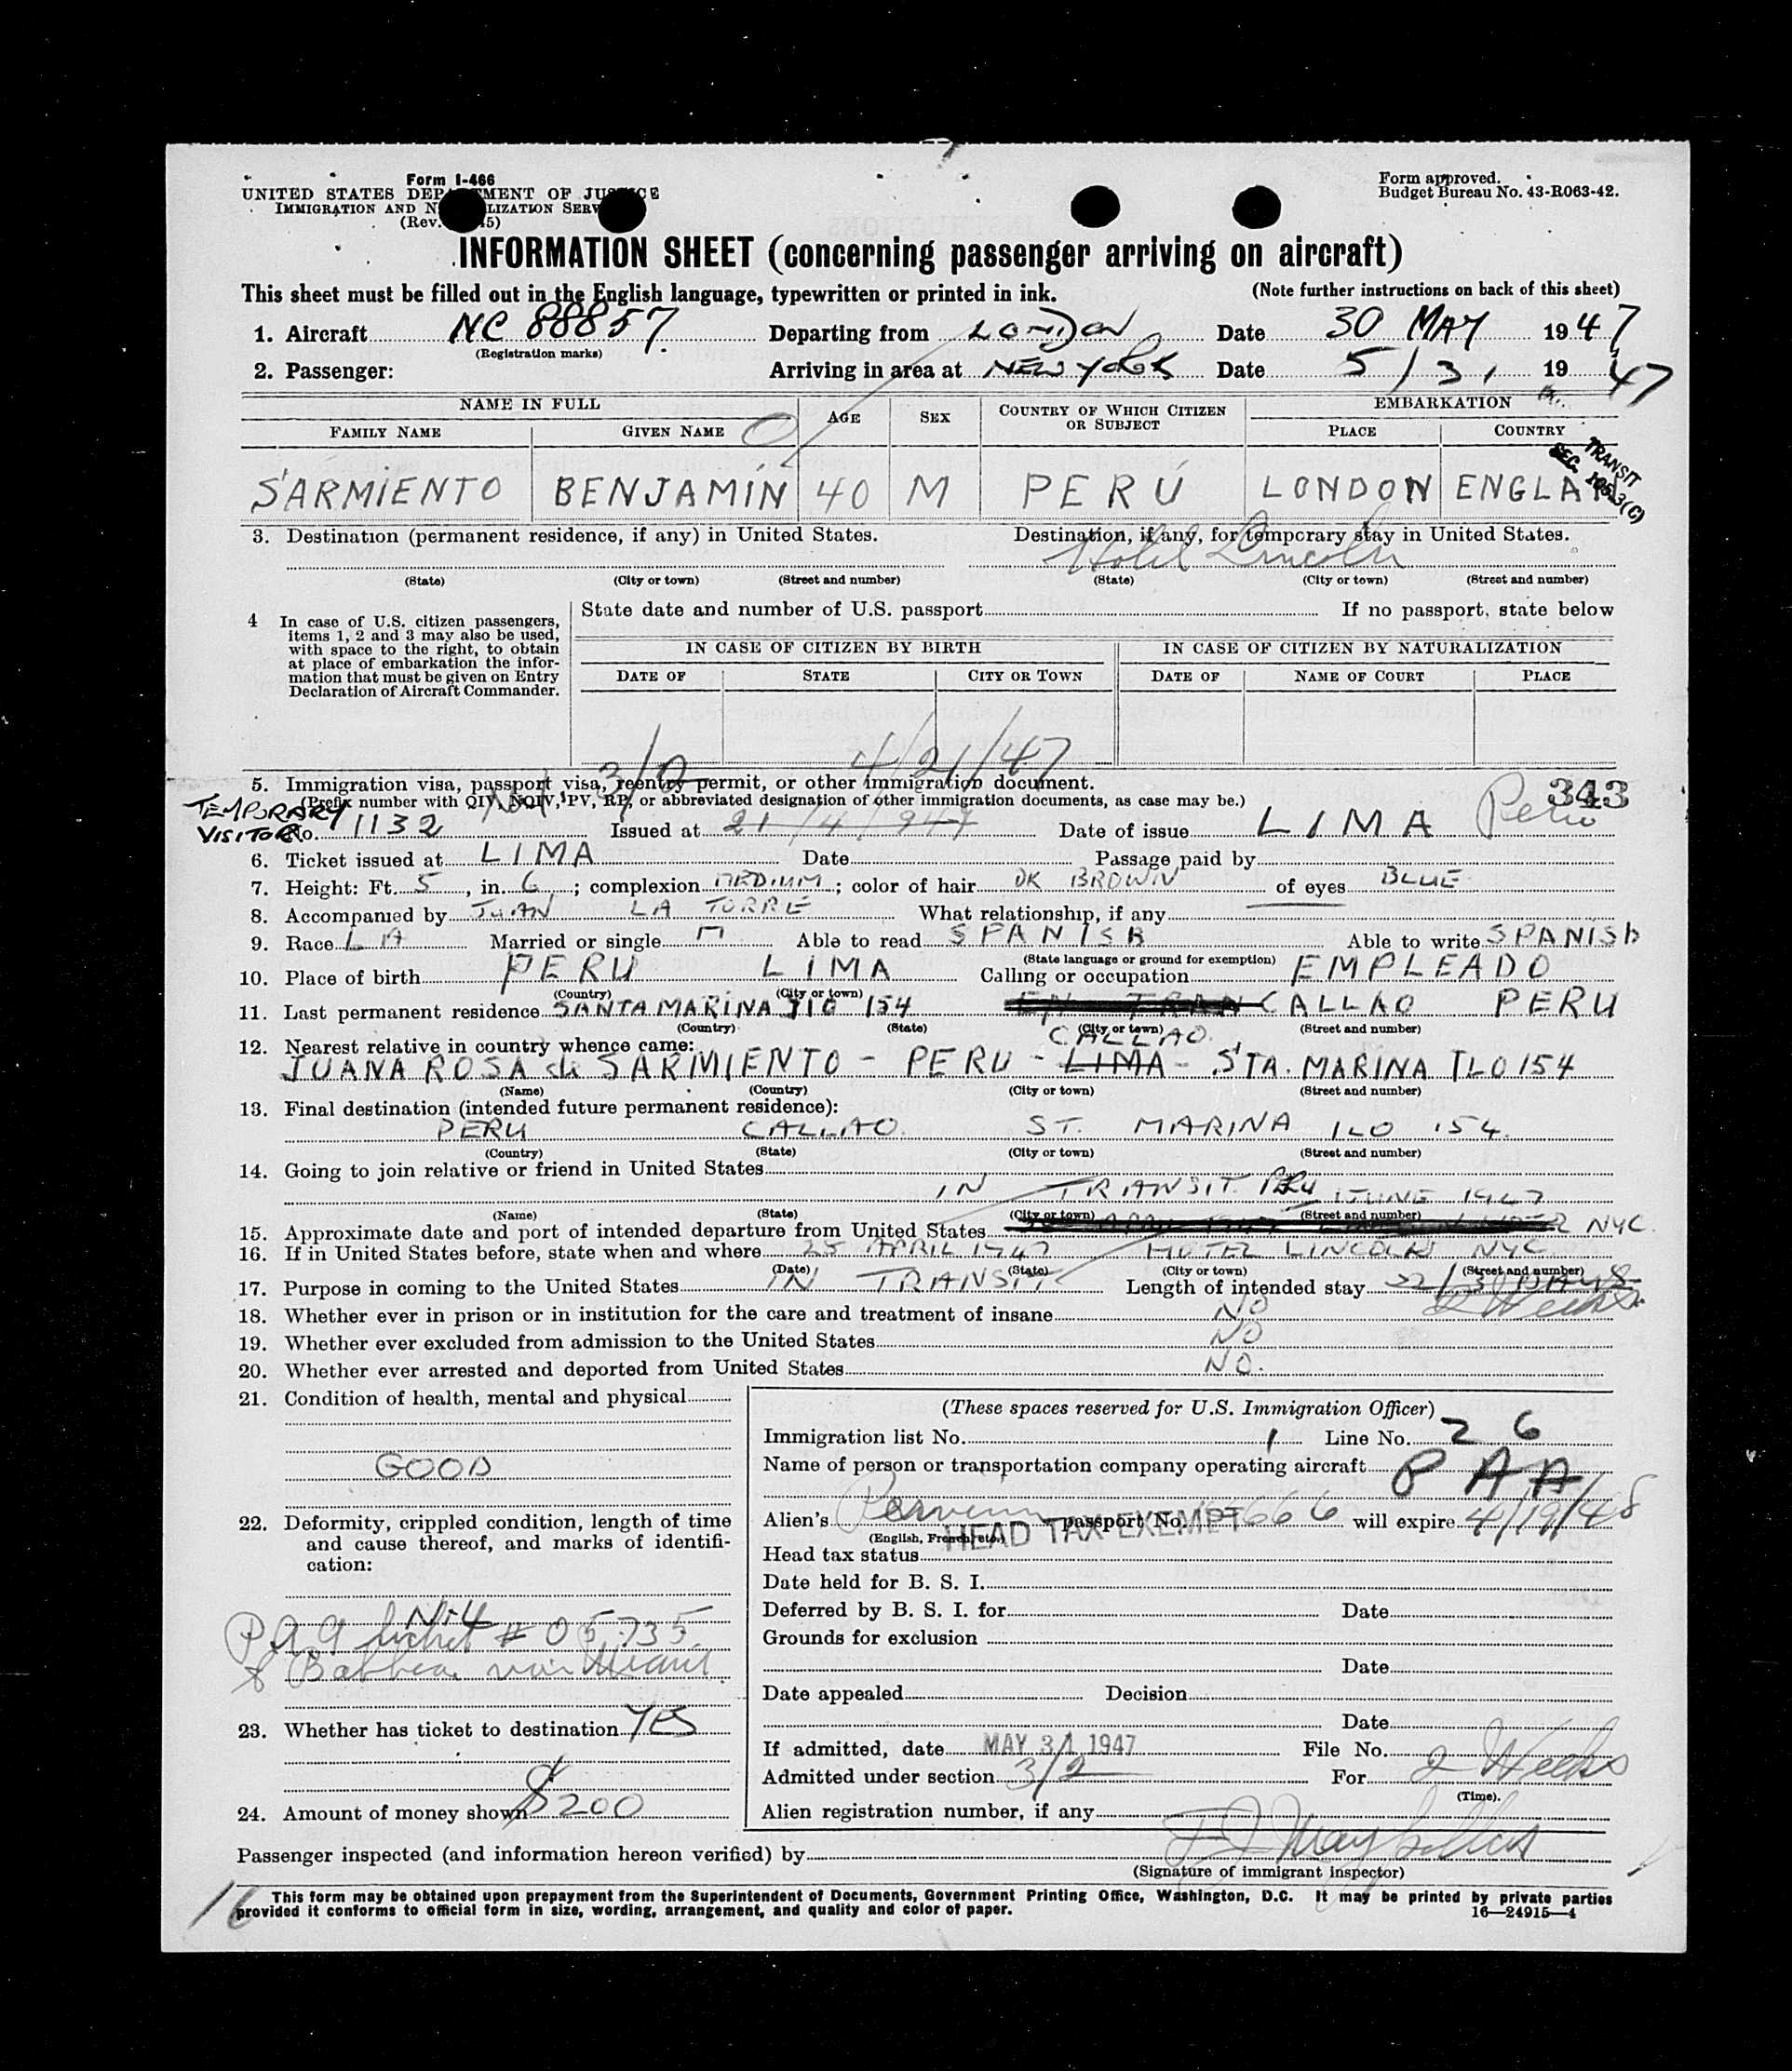 Form I-466
UNITED STATES DEP MENT OF JUS CE
IMMIGRATION AND N LIZATION SERV
(Rev. 5)
Form approved.
Budget Bureau No. 43-R063-42.
INFORMATION SHEET (concerning passenger arriving on aircraft)
This sheet must be filled out in the English language, typewritten or printed in ink. (Note further instructions on back of this sheet)
1. Aircraft NC 88857 Departing from LONDON Date 30 MAY 1947
(Registration marks)
2. Passenger: Arriving in area at NEW YORK Date 5/31 1947
NAME IN FULL AGE SEX COUNTRY OF WHICH CITIZEN OR SUBJECT EMBARKATION
FAMILY NAME GIVEN NAME PLACE COUNTRY
TRANSIT
SEC.
SARMIENTO BENJAMIN 40 M PERÚ LONDON ENGLAN
3. Destination (permanent residence, if any) in United States. Destination, if any, for temporary stay in United States.
Hotel Lincoln
(State) (City or town) (Street and number) (State) (City or town) (Street and number)
4 In case of U.S. citizen passengers, items 1, 2 and 3 may also be used, with space to the right, to obtain at place of embarkation the infor-mation that must be given on Entry Declaration of Aircraft Commander.
State date and number of U.S. passport If no passport, state below
IN CASE OF CITIZEN BY BIRTH IN CASE OF CITIZEN BY NATURALIZATION
DATE OF STATE CITY OR TOWN DATE OF NAME OF COURT PLACE
3/2 4/21/47
5. Immigration visa, passport visa, reentry permit, or other immigration document.
(Prefix number with QIV, NQIV, PV, RP, or abbreviated designation of other immigration documents, as case may be.) 343
TEMPORARY
VISITOR No. 1132 Issued at 21/4/947 Date of issue LIMA Peru
6. Ticket issued at LIMA Date Passage paid by
7. Height: Ft. 5, in. 6; complexion MEDIUM; color of hair DK BROWN of eyes BLUE
8. Accompanied by JUAN LA TORRE What relationship, if any
9. Race LA Married or single M Able to read SPANISH Able to write SPANISh
(State language or ground for exemption)
10. Place of birth PERU LIMA Calling or occupation EMPLEADO
(Country) (City or town)
11. Last permanent residence SANTA MARINA 154 CALLAO PERU
(Country) (State) (City or town) (Street and number)
12. Nearest relative in country whence came: CALLAO
JUANA ROSA de SARMIENTO - PERU - LIMA - STA. MARINA ILO 154
(Name) (Country) (City or town) (Street and number)
13. Final destination (intended future permanent residence):
PERU CALLAO ST. MARINA ILO 154
(Country) (State) (City or town) (Street and number)
14. Going to join relative or friend in United States
IN TRANSIT PERU JUNE 1947
(Name) (State) (City or town) (Street and number)
15. Approximate date and port of intended departure from United States NYC
16. If in United States before, state when and where 25 APRIL 1947 HOTEL LINCOLN NYC
(Date) (State) (City or town) (Street and number)
17. Purpose in coming to the United States IN TRANSIT Length of intended stay DAYS
2 Weeks
18. Whether ever in prison or in institution for the care and treatment of insane NO
19. Whether ever excluded from admission to the United States NO
20. Whether ever arrested and deported from United States NO.
21. Condition of health, mental and physical
GOOD
22. Deformity, crippled condition, length of time and cause thereof, and marks of identifi-cation:
Nil
PAA ticket # 05735
to Balboa via Miami
23. Whether has ticket to destination YES
24. Amount of money shown $200
(These spaces reserved for U.S. Immigration Officer)
Immigration list No. 1 Line No. 26
Name of person or transportation company operating aircraft PAA
Alien's Peruvian passport No. 666 will expire 4/19/48
(English, French, etc.)
HEAD TAX EXEMPT
Head tax status
Date held for B. S. I.
Deferred by B. S. I. for Date
Grounds for exclusion
Date
Date appealed Decision
Date
If admitted, date MAY 31 1947 File No.
Admitted under section 3/2 For 2 Weeks
(Time).
Alien registration number, if any
Passenger inspected (and information hereon verified) by
(Signature of immigrant inspector)
16
This form may be obtained upon prepayment from the Superintendent of Documents, Government Printing Office, Washington, D.C. It may be printed by private parties
provided it conforms to official form in size, wording, arrangement, and quality and color of paper. 16—24915—4